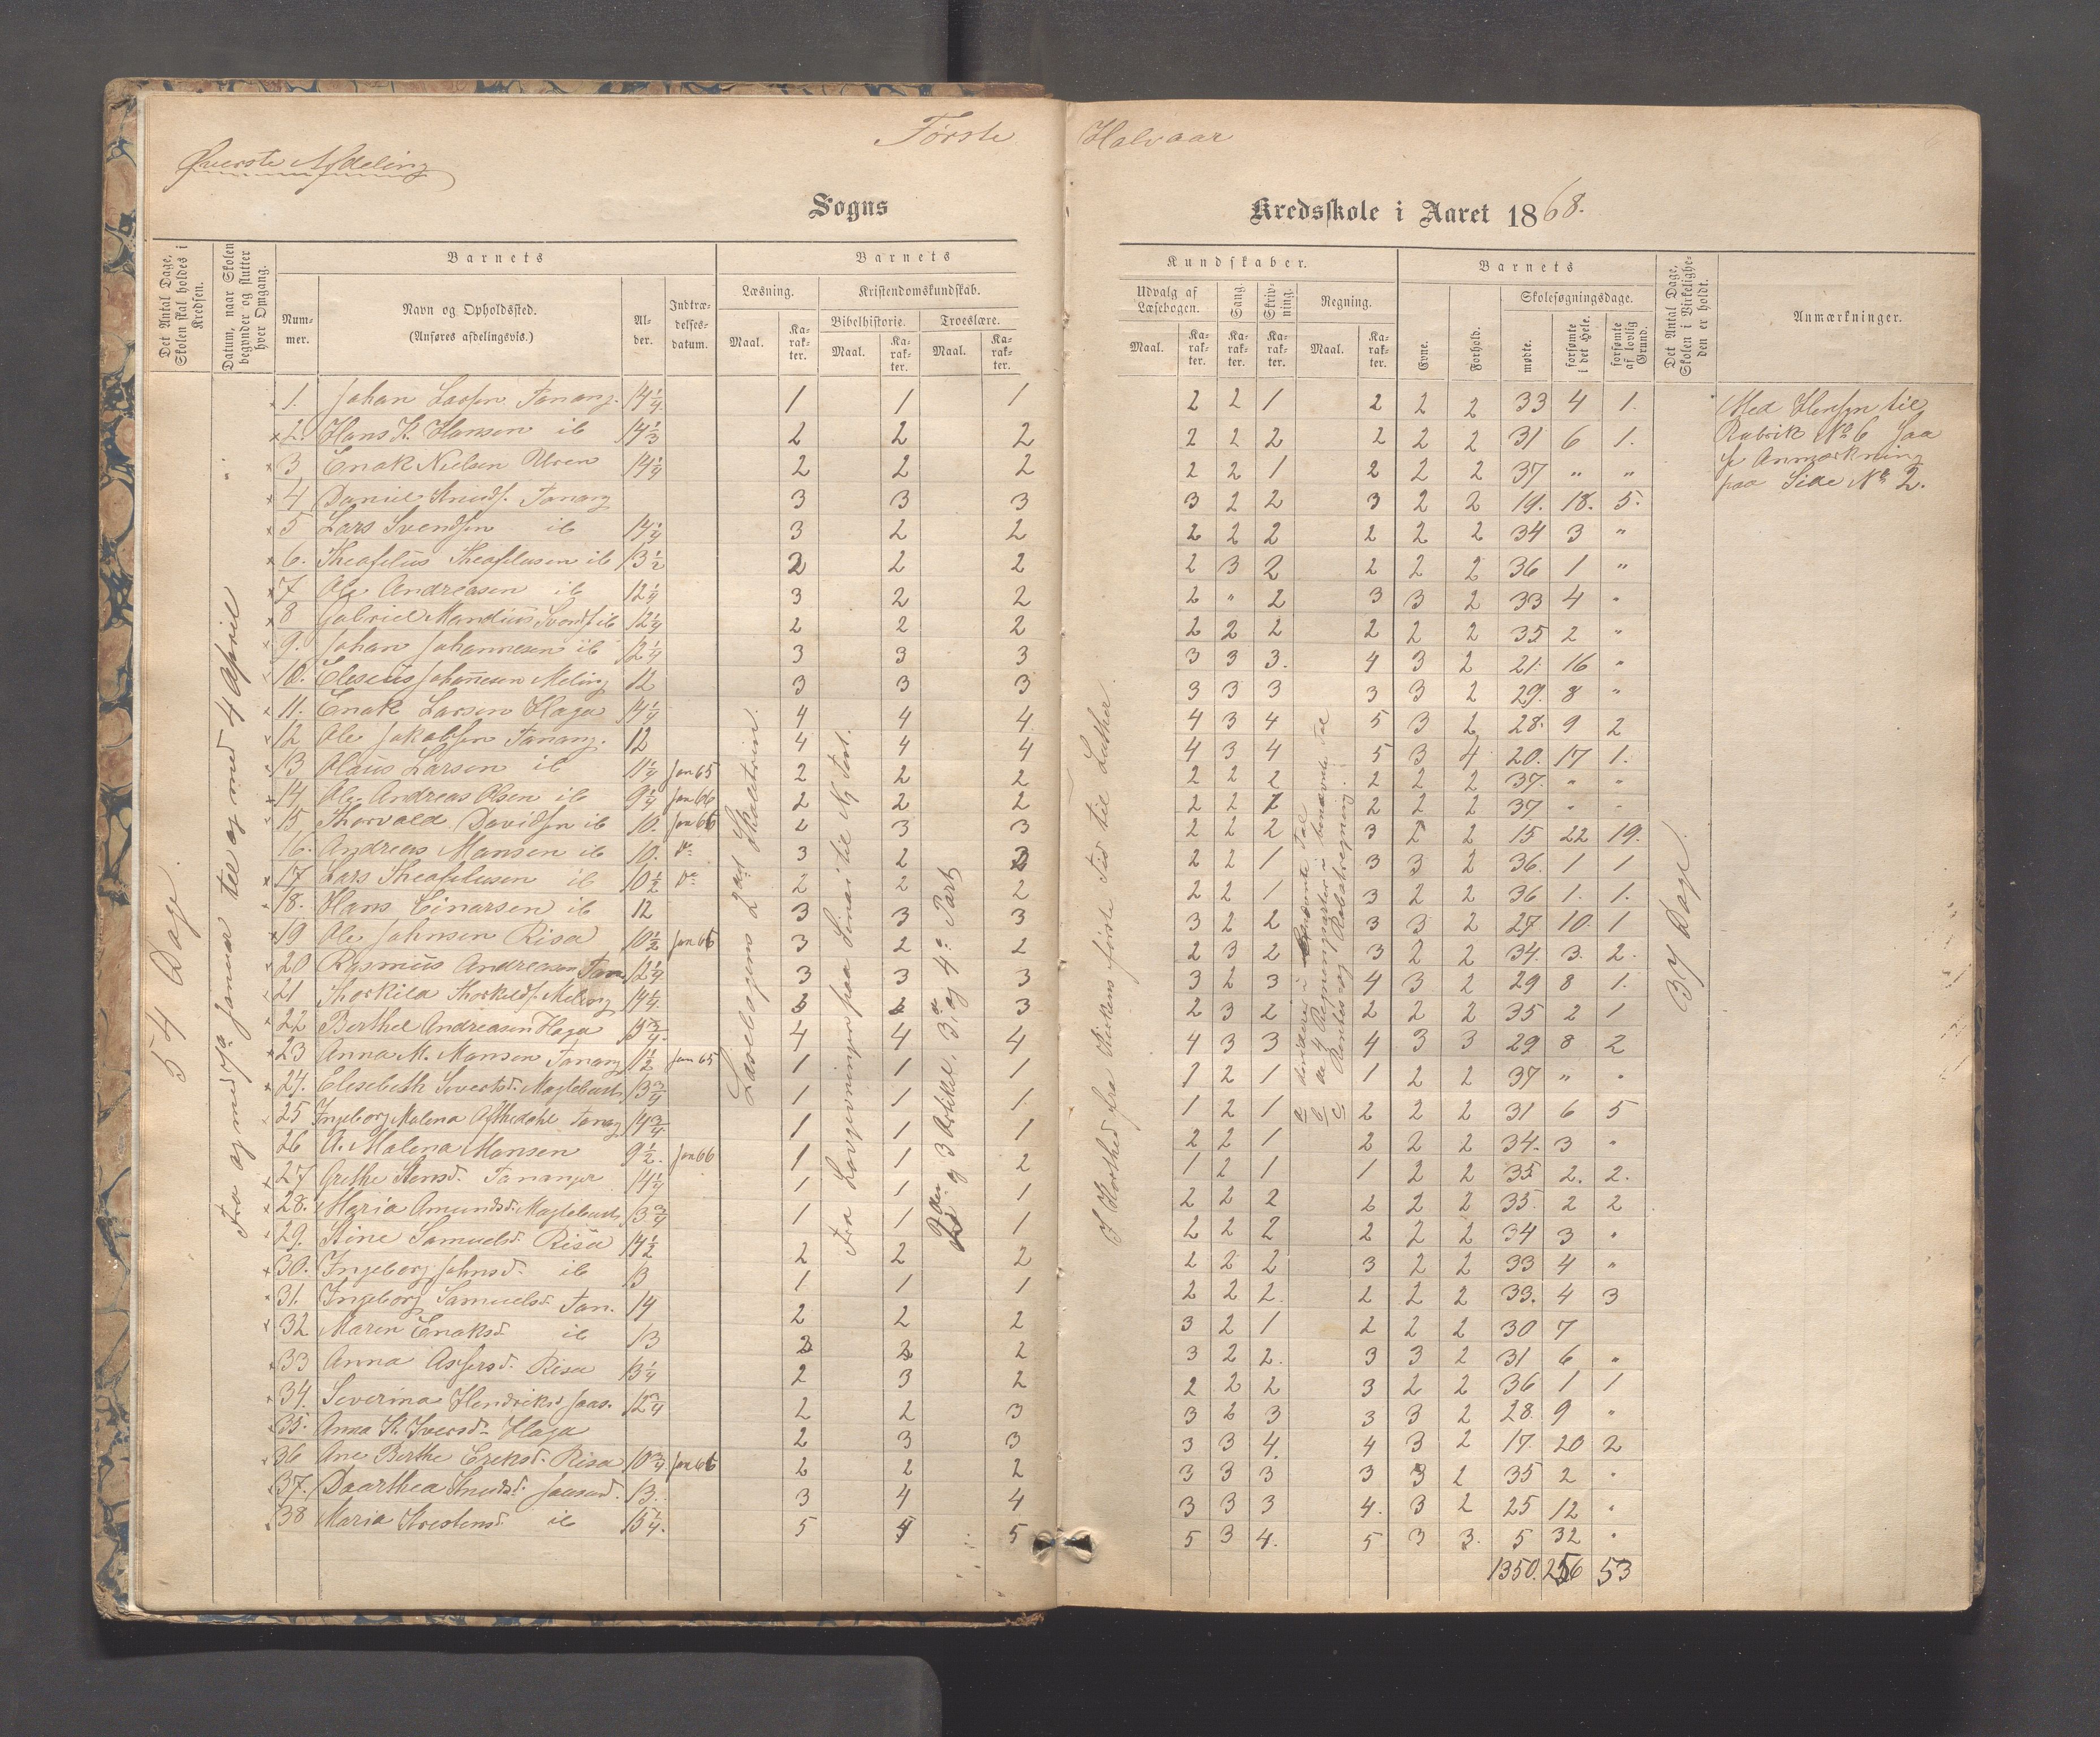 Første Halvaar
Øverste Afdeling
Sogns Kredsskole i Aaret 1868.
Det Antal Dage, Skolen skal holdes i Kredsen.
Datum, naar Skolen begynder og slutter hver Omgang.
Barnets
Nummer.
Navn og Opholdssted.
(Anføres afdelingsvis.)
Alder.
Indtrædelsesdatum.
Barnets Kundskaber.
Læsning.
Maal.
Karakter.
Kristendomskundskab.
Bibelhistorie.
Maal.
Karakter.
Troeslære.
Maal.
Karakter.
Udvalg af Læsebogen.
Maal.
Karakter.
Sang.
Karakter.
Skrivning.
Karakter.
Regning.
Maal.
Karakter.
Barnets
Evne.
Forhold.
Skolesøgningsdage.
mødte.
forsømte i det Hele.
forsømte af lovlig Grund.
Det Antal Dage, Skolen i Virkeligheden er holdt.
Anmærkninger.
54 Dage
Fra og med 7de Januar til og med 4 April
Læsebogens 2det Skoletrin.
Fra Lovgivningen paa Sinai til N. Test.
og 3 Artikel. 3de og 4de Part
I Korthed fra Kirkens første Tid til Luther
a
b de 4 Regningsarter i benævnte Tal
c Renters og Rabatregning.
37 Dage.
Med Hensyn til
Rubrik No 6 saa
se Anmærkning
paa Side No 2.
1. Johan Larsen Tanang. 14 1/4 1 1 1 2 2 1 2 2 2 33 4 1.
2. Hans K. Hansen ib 14 1/3 2 2 2 2 2 2 2 2 2 31 6 1.
3 Enok Nielsen 14 1/4 2 2 2 2 2 1 2 2 2 37 " "
4 Daniel Knuds. Tanang 3 3 3 3 2 2 3 2 2 19. 18. 5.
5 Lars Svendsen ib 14 1/4 3 2 2 2 2 2 2 2 2 34 3 "
6. Theofelus Theofelusen ib 13 1/2 2 2 2 2 3 2 2 2 2 36 1 "
7 Ole Andreasen ib 12 1/4 3 2 2 2 " 2 3 3 2 33 4 "
8 Gabriel Mandius Svends. ib 12 1/4 2 2 2 2 2 2 2 2 2 35 2 "
9. Johan Johannesen ib 12 1/4 3 3 3 3 3 3. 4 3 2 21. 16 "
10. Eleseus Johannesen Meling 12 3 3 3 3 3 3 3 3 2 29. 8 "
11. Enok Larsen Haga 14 1/4 4 4 4 4 3 4 5 3 2 28. 9 2
12 Ole Jakobsen Tanang. 12 4 4 4 4 3 4 5 3 4 20. 17 1.
13 Olaus Larsen ib 11 1/4 Jan 65 2 2 2 2 2 2 2 2 2 37. " "
14 Ole Andreas Olsen ib 9 1/4 Jan 66 2 2 2 2 2 2 2 2 2 37 " "
15 Thorvald Davidsen ib 10. Jan 66 2 3 3 2 2 2 3 2 2 15 22 19.
16. Andreas Monsen ib 10. do 3 2 2 2 2 1 3 3 2 36. 1 1
17 Lars Theofelusen ib 10 1/2 do 2 2 2 2 2 1 3 2 2 36 1. 1.
18. Hans Einarsen ib 12 3 3 3 3 2 2 3 3 2 27 10. 1
19 Ole Johnsen Risa 10 1/2 Jan 66 3 2 2 2 3 2 3 2 2 34. 3. 2.
20 Rasmus Andreasen Tan. 12 1/4 3 3 3 3 2 3 4 3 2 29 8 1.
21 Thorkild Thorkelds. Meling 14 1/4 3 2 3 2 3 2 2 2 2 35 2 1
22 Berthel Andreasen Haga 13 3/4 4 4 4 4 3 3 4 3 3 29 8 2
23 Anna M. Monsen Tanang 11 1/2 Jan 65 1 1 1 1 2 1 1 2 2 37 " "
24. Elesebeth Sivertsd. 13 3/4 1 1 1 1 2 1 2 2 2 31 6 5
25 Ingeborg Malena Tanang 14 3/4 1 1 1 2 2 1 2 2 2 34. 3 "
26 A. Malena Monsen 9 1/2. Jan 66 1 1 2 1 2 1 1 2 2 35 2. 2.
27 Grethe Tananger 14 1/4 1 1 1 2 2 2 2 2 2 35. 2 2
28. Maria Amundsd. 13 3/4 1 1 1 2 2 2 2 2 2 34 3 "
29. Stine Samuelsd. Risa 14 1/2 2 2 2 2 2 2 3 2 2 33 4 "
30. Ingeborg Johnsd. ib 13 1 1 1 2 2 2. 2 2 2 33. 4 3
31. Ingeborg Samuelsd. Tan. 14 2 2 2 3 2 1 2 2 2 30 7
32 Maren Enoksd. ib 13 2 2 2 3 2 2. 3 3 2 31 6 "
33 Anna Risa 13 1/4 2 3 2 2 2 2 3 2 2 36 1 1
34. Severina Hendriksd. 12 3/4 2 2 3 3 2 3 3 3 2 28. 9 "
35. Anna K. Iversd. Haga 2 3 3 3 3 4. 4 3 2 17. 20 2
36 Ane Berthe Ereksd. Risa 10 3/4 Jan 66 2 2 2 3 3 3 3 3 2 35 2 "
37. Daarthea Knudsd. 13. 3 4 4 3 3 3 4. 3 2 25 12 "
38 Maria ib 13 3/4. 5 4 5 5 3 4. 5 3 3. 5 32 "
1350. 256 53